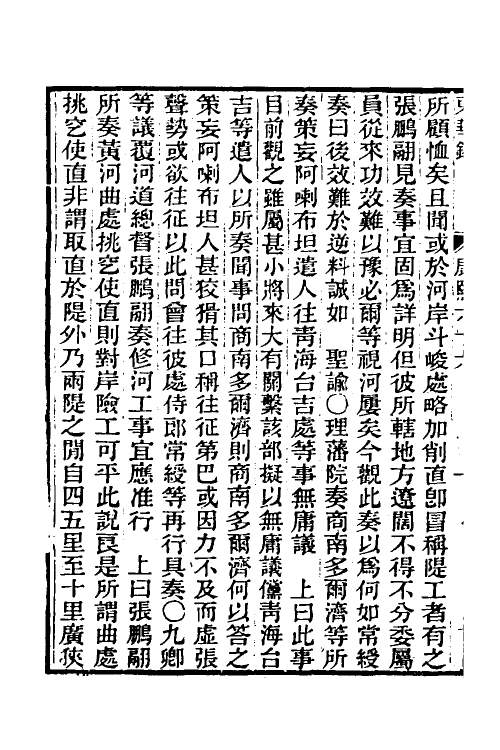 所顧恤矣且聞或於河岸斗峻處略加削直卽冒稱隄工者有之
張鵬翮見奏事宜固爲詳明但彼所轄地方遼闊不得不分委屬
員從來功效難以豫必爾等視河屢矣今觀此奏以爲何如常綬
奏曰後效難於逆料誠如　聖諭○理藩院奏商南多爾濟等所
奏策妄阿喇布坦遣人往青海台吉處等事無庸議　上曰此事
目前觀之雖屬甚小將來大有關繫該部擬以無庸議儻青海台
吉等遣人以所奏聞事問商南多爾濟則商南多爾濟何以答之
策妄阿喇布坦人甚狡猾其口稱往征第巴或因力不及而虛張
聲勢或欲往征以此問會往彼處侍郎常綬等再行具奏○九卿
等議覆河道總督張鵬翮奏修河工事宜應准行　上曰張鵬翮
所奏黃河曲處挑穵使直則對岸險工可平此說良是所謂曲處
挑穵使直非謂取直於隄外乃兩隄之閒自四五里至十里廣狹